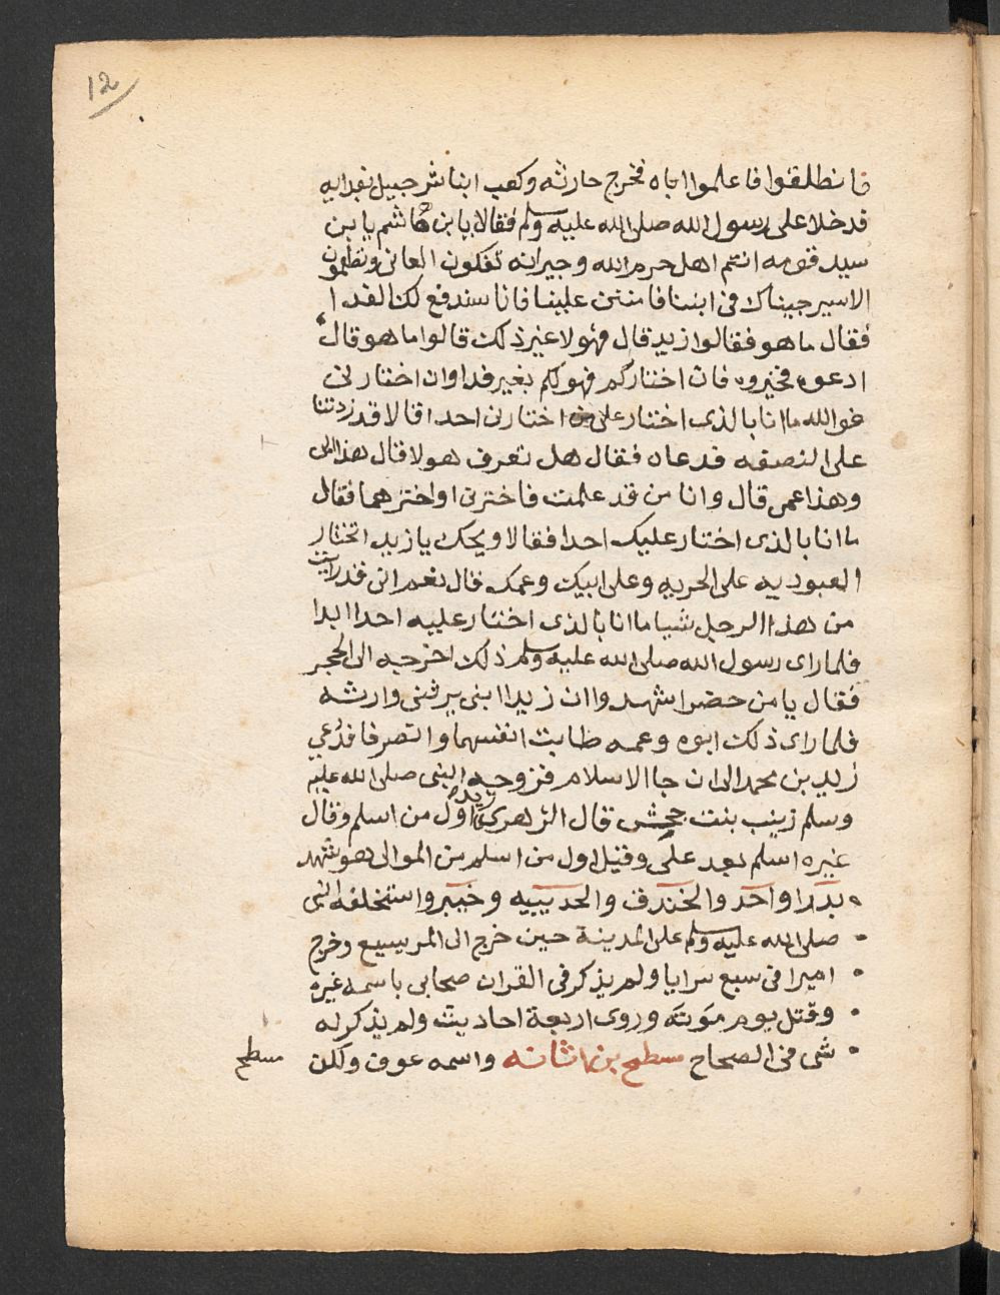 12
فانطلقوا فاعلموا اباه فخرج حارثه وكعب ابنا شرحبيل بفدايه
فدخلا على رسول الله صلى الله عليه وسلم فقالا يا بن هاشم يا بن
سيد قومه انتم اهل حرم الله وجيرانه تفكون العانى وتطعمون
الاسير جيناك فى ابننا فامنن علينا فانا سندفع لك الفدا
فقال ما هو فقالوا زيد قال فهولا غير ذلك قالوا ما هو قال
ادعوه فخيروه فان اختاركم فهو لكم بغير فدا وان اختارنى
فوالله ما انا بالذى اختار على من اختارنى احدا قالا قد زدتنا
على النصفه فدعاه فقال هل تعرف هولا قال هذا ابى
وهذا عمى قال وانا من قد علمت فاخترنى او اخترهما فقال
ما انا بالذى اختار عليك احدا فقالا ويحك يا زيد اتختار
العبوديه على الحريه وعلى ابيك وعمك قال نعم انى قد رايت
من هذا الرجل شيا ما انا بالذى اختار عليه احدا ابدا
فلما راى رسول الله صلى الله عليه وسلم ذلك اخرجه الى الحجر
فقال يا من حضر اشهدوا ان زيدا ابنى يرثنى وارثه
فلما راى ذلك ابوه وعمه طابت انفسهما وانصرفا فدعي
زيد بن محمد الى ان جا الاسلام فزوجه النبى صلى الله عليه
وسلم زينب بنت جحش قال الزهرى زيد اول من اسلم وقال
غيره اسلم بعد على وقيل اول من اسلم من الموالى هو شهد
بدرا واحد والخندق والحديبيه وخيبر واستخلفه النبى
صلى الله عليه وسلم على المدينة حين خرج الى المريسيع وخرج
اميرا فى سبع سرايا ولم يذكر فى القران صحابى باسمه غيره
وقتل يوم موته وروى اربعة احاديث ولم يذكر له
شى فى الصحاح مسطح بن اثاثه واسمه عوف ولكن
مسطح